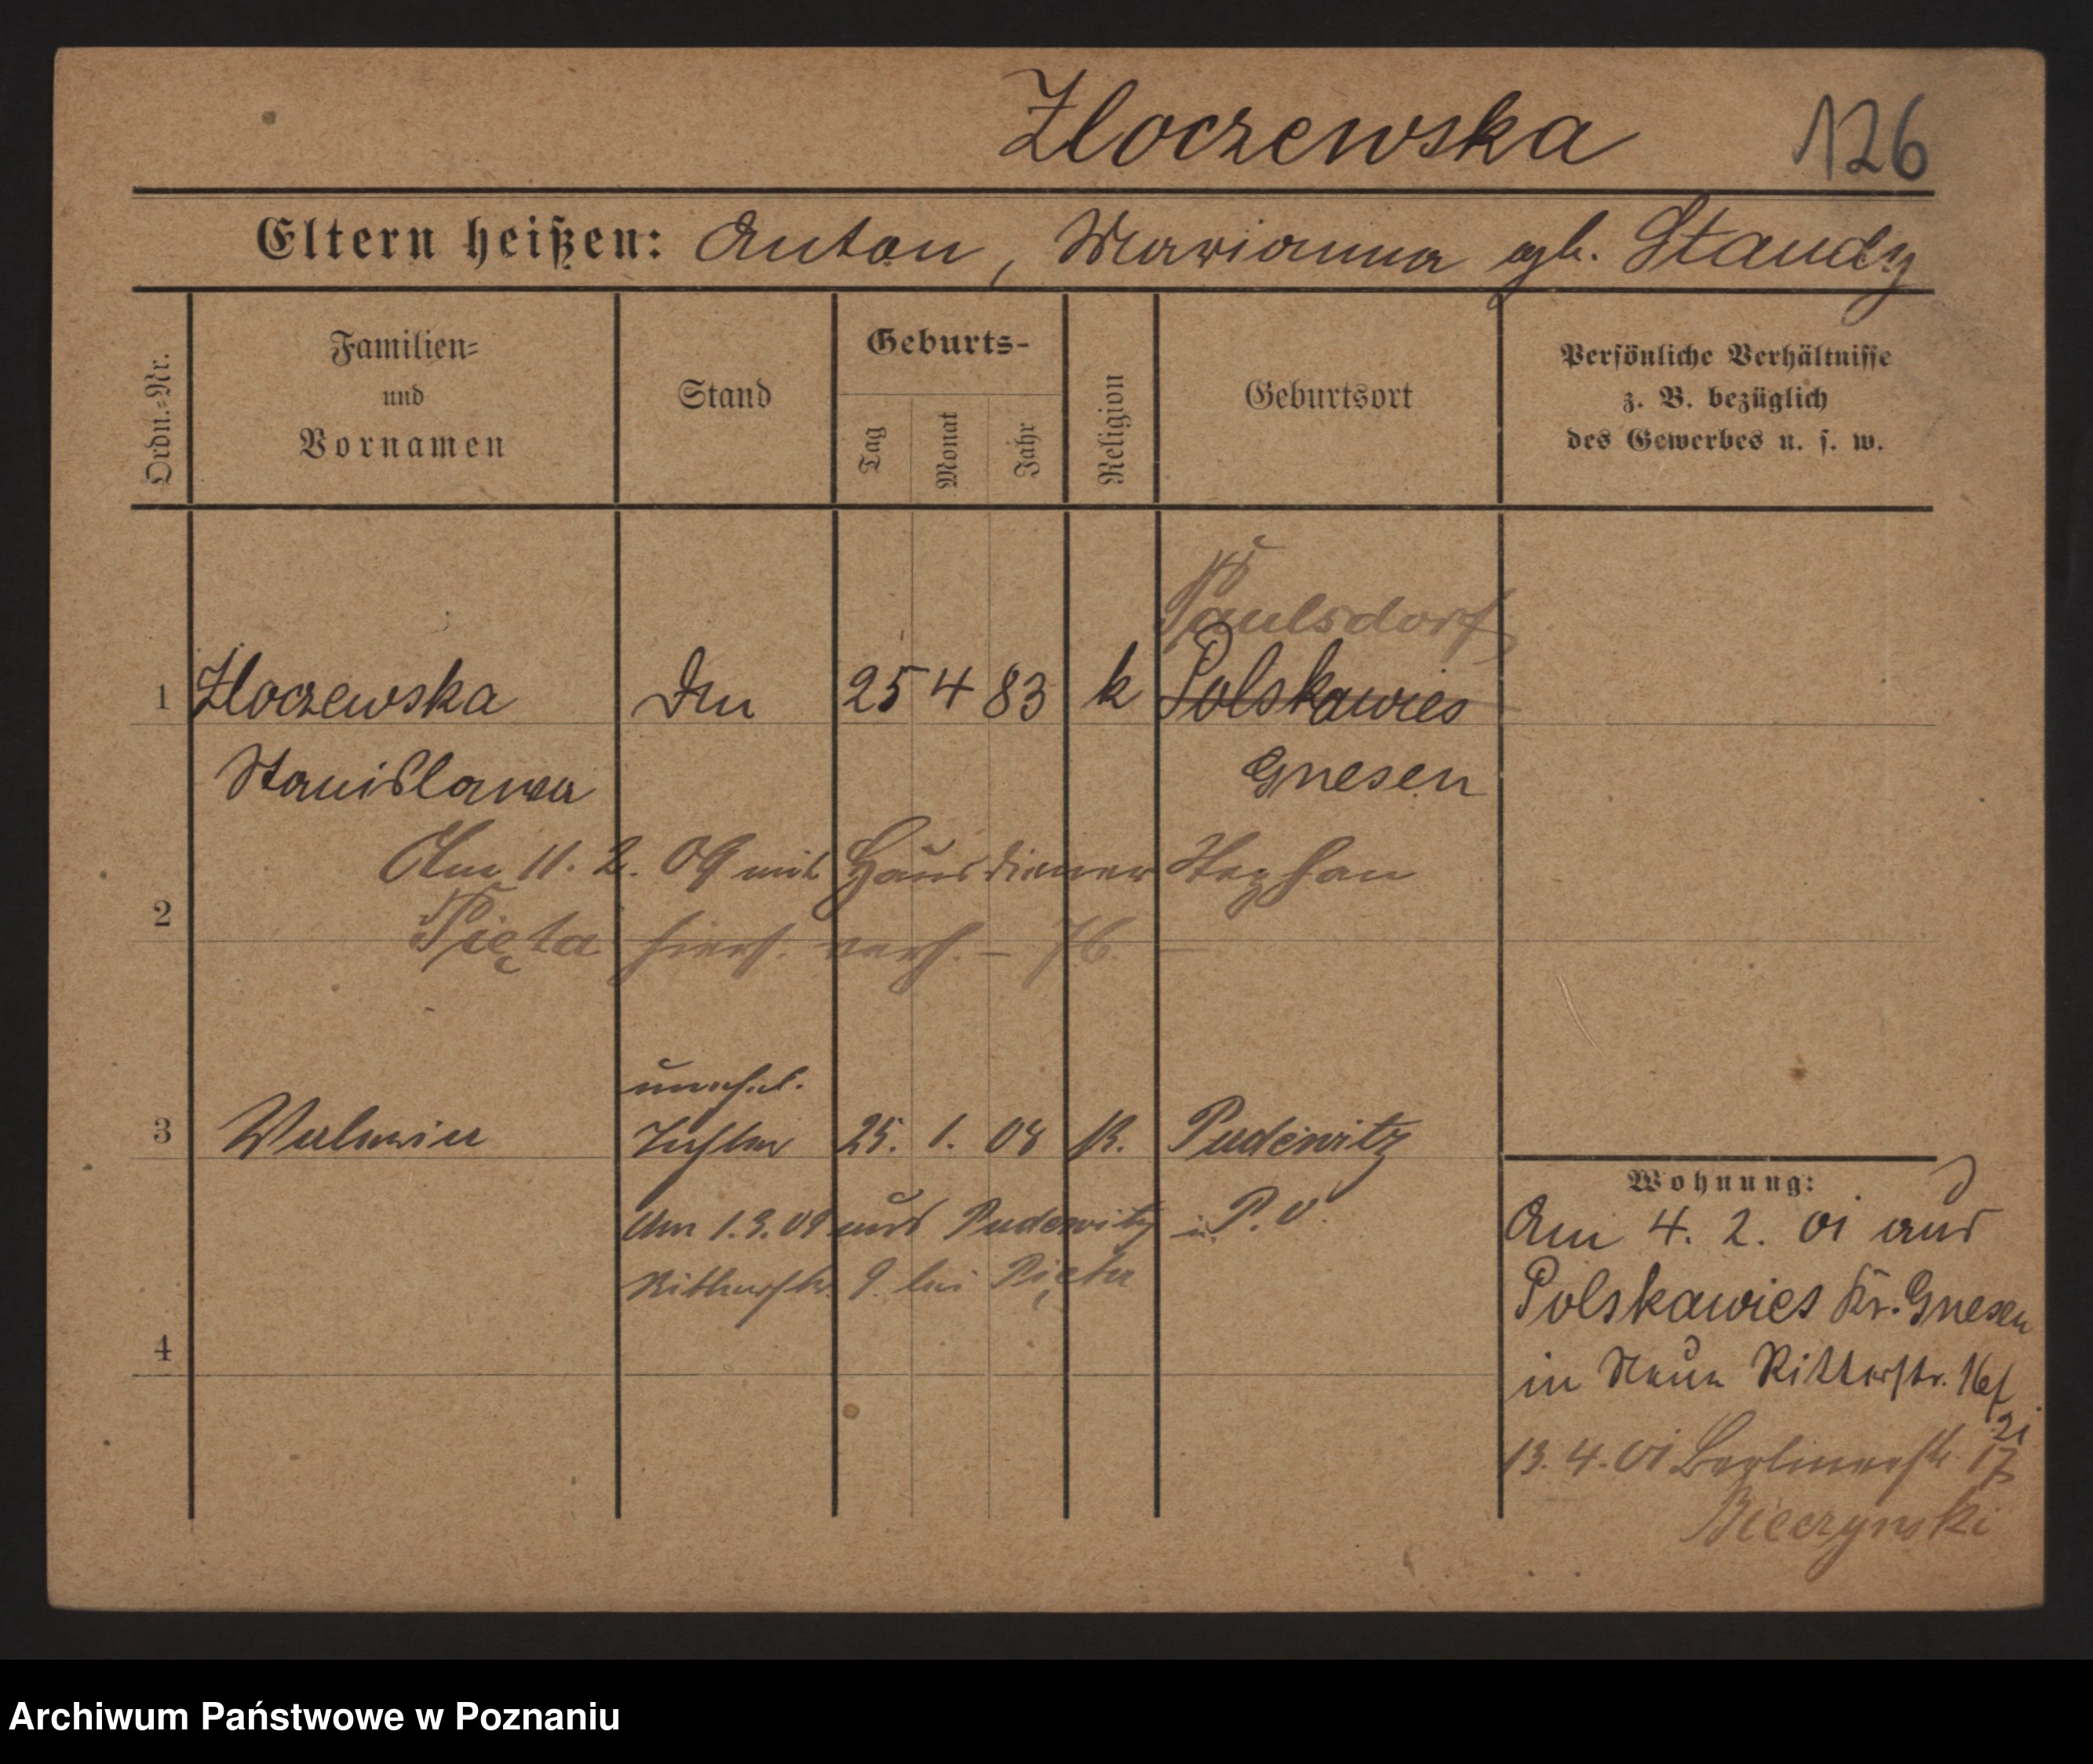 Zloczewska 126
Eltern heißen: Anton, Marianna geb. Staudy
Ordn.=Nr.
Familien=
und
Vornamen
Stand
Geburts-
Tag
Monat
Jahr
Religion
Geburtsort
Persönliche Verhältnisse
z. B. bezüglich
des Gewerbes u. s. w.
Paulsdorf
1 Zloczewska 25 4 83 k Polskawies
Stanislawa Gnesen
Am 11. 2. 09 mit Hausdiener Stephan
2
Pięta hiers. verh. – 76. –
unehel.
3 Tochter 25. 1. 08 K. Pudewitz
Am 1.3.09 aus Pudewitz in P. O.
Ritterstr. 9. bei Pięta
4
Wohnung:
Am 4. 2. 01 aus
Polskawies Kr. Gnesen
in Neue Ritterstr. 16
21
13. 4. 01 Berlinerstr. 17
Bieczynski
Archiwum Państwowe w Poznaniu